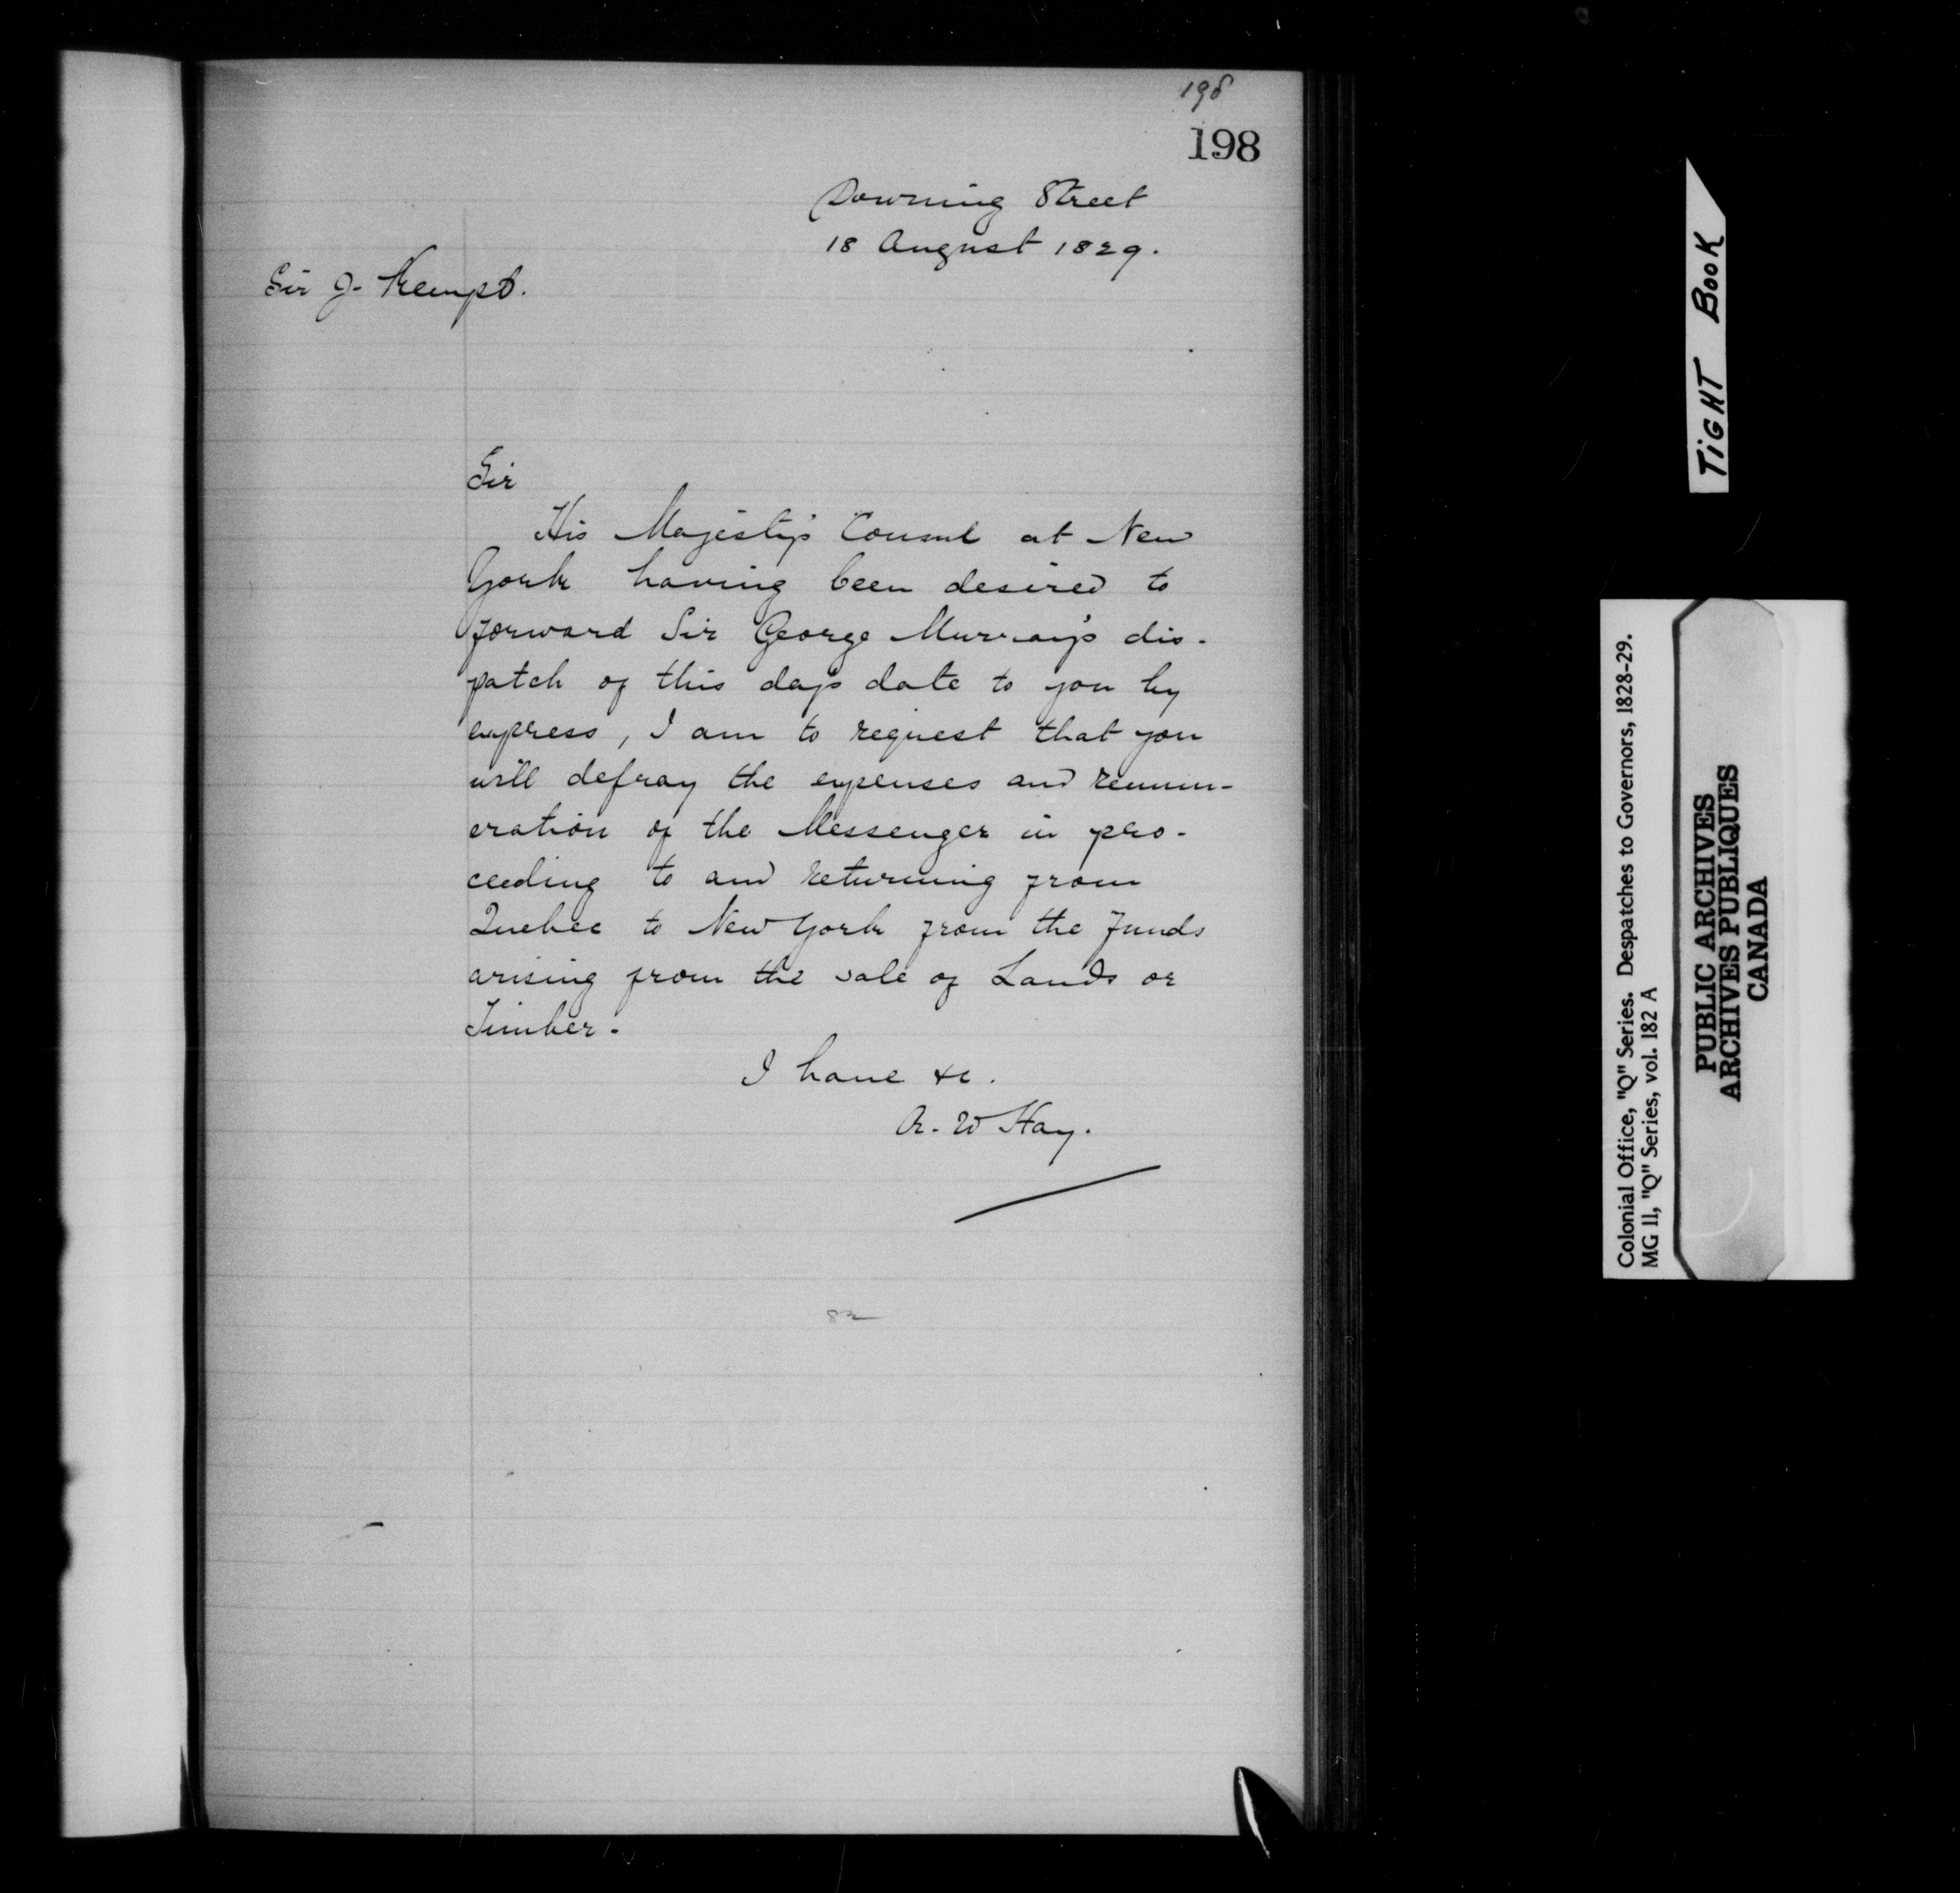 198
198
Downing Street
18 August 1829.
Sir J. Kempt.
Sir
His Majesty's Consul at New
York having been desired to
forward Sir George Murray's dis-
patch of this day's date to you by
express, I am to request that you
will defray the expenses and remun-
eration of the Messenger in pro-
ceeding to and returning from
Quebec to New York from the funds
arising from the sale of Lands or
Timber.
I have &c.
R. W Hay.
82
TIGHT BOOK
Colonial Office, "Q" Series. Despatches to Governors, 1828-29.
MG 11, "Q" Series, vol. 182 A
PUBLIC ARCHIVES
ARCHIVES PUBLIQUES
CANADA